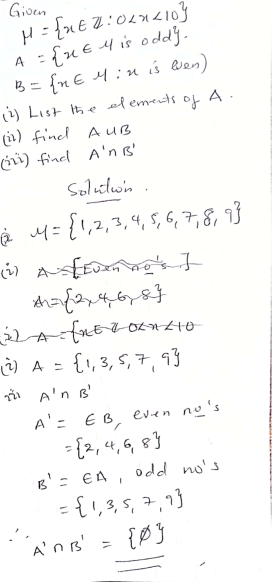 Given
μ = {x ∈ ℤ : 0 < x < 10}
A = {x ∈ μ is odd}.
B = {x ∈ μ : x is even)
(i) List the elements of A.
(ii) find A ∪ B
(iii) find A' ∩ B'
Solution.
μ = {1, 2, 3, 4, 5, 6, 7, 8, 9}
(i) A = {Even no's}
A = {2, 4, 6, 8}
A = {x ∈ ℤ 0 < x < 10
(i) A = {1, 3, 5, 7, 9}
iii A' ∩ B'
A' = ∈ B, even no's
= {2, 4, 6, 8}
B' = ∈ A, odd no's
= {1, 3, 5, 7, 9}
∴ A' ∩ B' = {Ø}